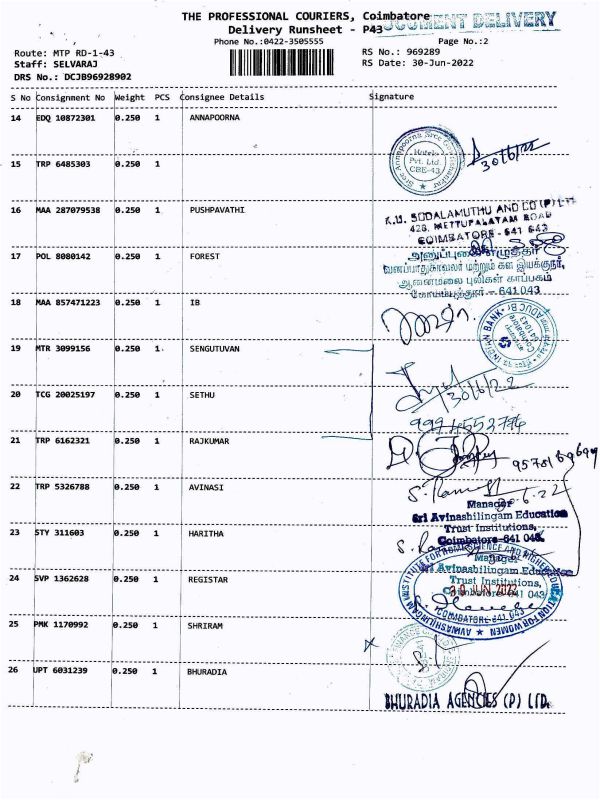 THE PROFESSIONAL COURIERS, Coimbatore
DOCUMENT DELIVERY
Delivery Runsheet - P43
Phone No.:0422-3505555 Page No.:2
Route: MTP RD-1-43 RS No.: 969289
Staff: SELVARAJ RS Date: 30-Jun-2022
DRS No.: DCJB96928902
S No Consignment No Weight PCS Consignee Details Signature
14 EDQ 10872301 0.250 1 ANNAPOORNA
Hotels
Pvt. Ltd.
CBE-43
30/6/22
15 TRP 6485303 0.250 1
16 MAA 287079538 0.250 1 PUSHPAVATHI
K.U. SODALAMUTHU AND CO (P) LTD
428, METTUPALAYAM ROAD
COIMBATORE - 641 043
17 POL 8080142 0.250 1 FOREST
வனப்பாதுகாவலர் மற்றும் கள இயக்குநர்,
ஆனைமலை புலிகள் காப்பகம்
கோயம்புத்தூர் - 641 043
18 MAA 857471223 0.250 1 IB
INDIAN BANK
19 MTR 3099156 0.250 1 SENGUTUVAN
30/6/22
20 TCG 20025197 0.250 1 SETHU
9994553774
21 TRP 6162321 0.250 1 RAJKUMAR
22 TRP 5326788 0.250 1 AVINASI
Manager
Sri Avinashilingam Education
Trust Institutions,
Coimbatore-641 043.
23 STY 311603 0.250 1 HARITHA
Manager
Sri Avinashilingam Education
Trust Institutions,
Coimbatore-641 043
24 SVP 1362628 0.250 1 REGISTAR
AVINASHILINGAM INSTITUTE FOR HOME SCIENCE AND HIGHER EDUCATION FOR WOMEN
30 JUN 2022
COIMBATORE-641 043
25 PMK 1170992 0.250 1 SHRIRAM
26 UPT 6031239 0.250 1 BHURADIA
BHURADIA AGENCIES (P) LTD.